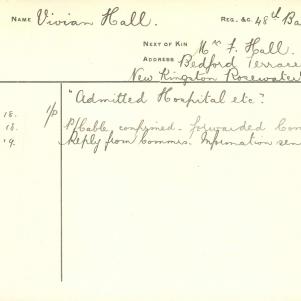 NAME Vivian Hall. REG. &C. 48th Ba
NEXT OF KIN Mr F. Hall.
ADDRESS Bedford Terrace
New Kingston Rosewater
"Admitted Hospital etc?
18. I/P
18. P/Cable confirmed. forwarded Com
19. Reply from Commis. Information sen